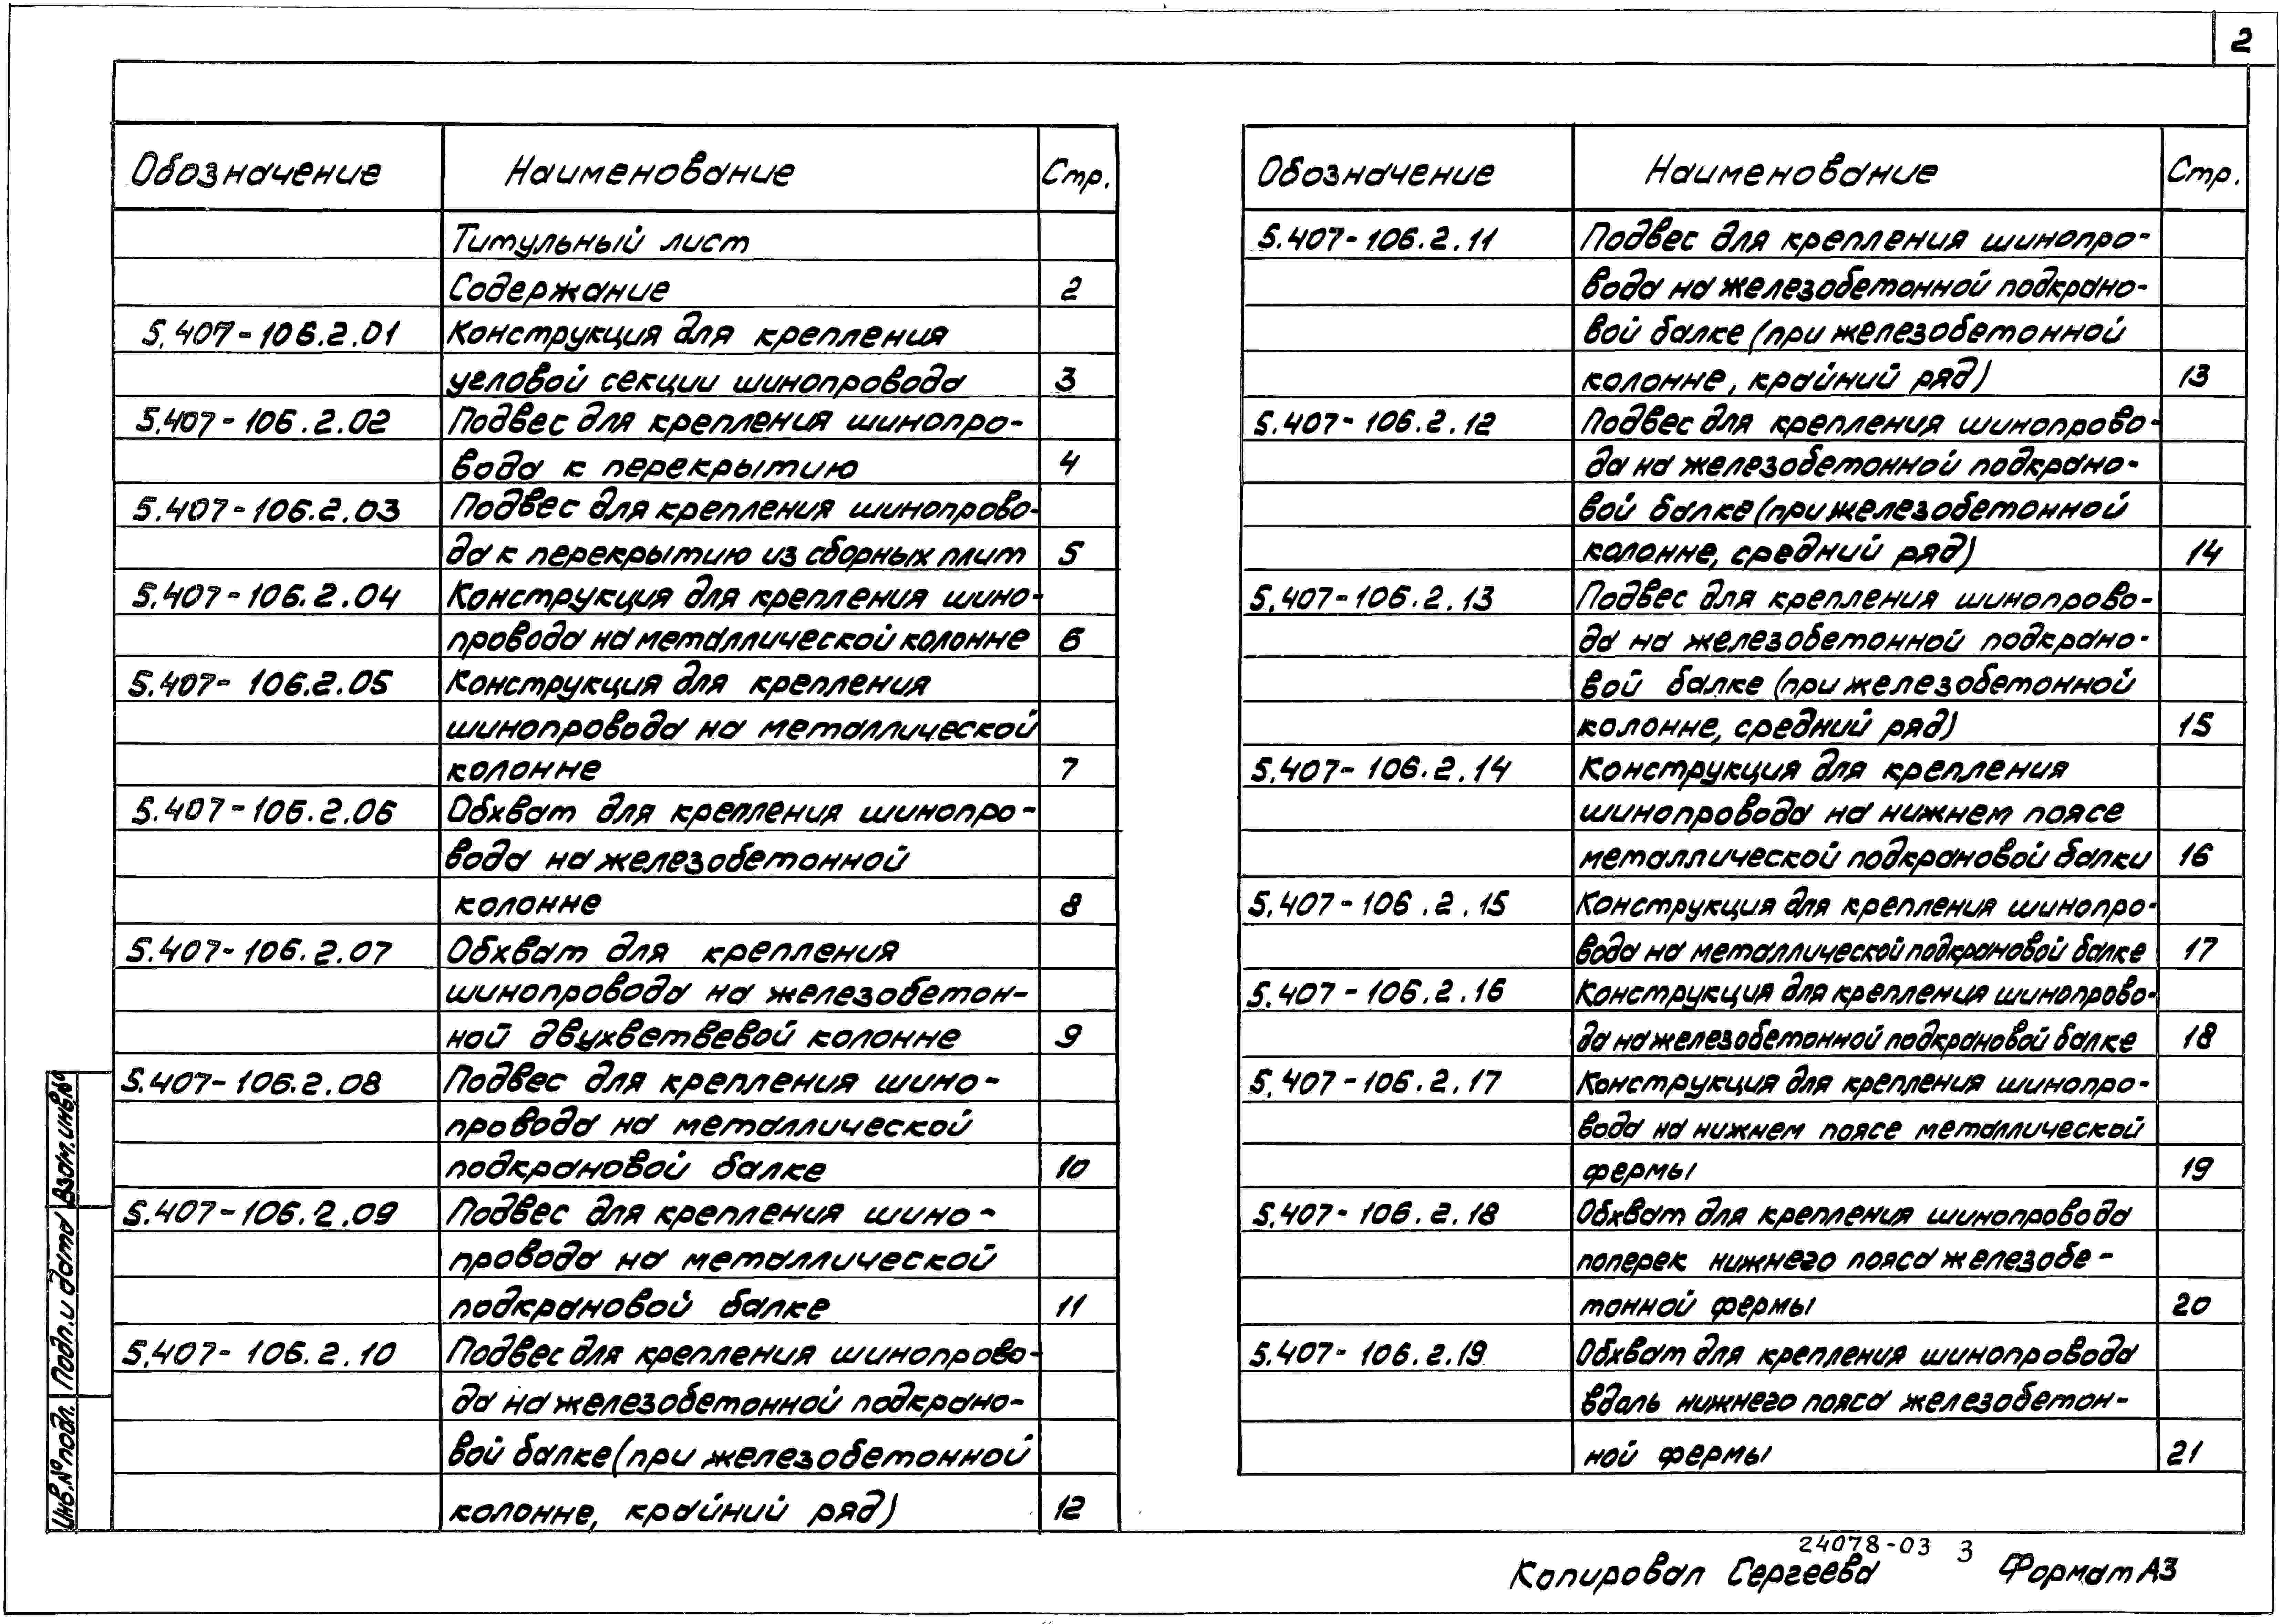 2
Обозначение Наименование Стр.
Титульный лист
Содержание 2
5.407-106.2.01 Конструкция для крепления
угловой секции шинопровода 3
5.407-106.2.02 Подвес для крепления шинопро-
вода к перекрытию 4
5.407-106.2.03 Подвес для крепления шинопрово-
да к перекрытию из сборных плит 5
5.407-106.2.04 Конструкция для крепления шино-
провода на металлической колонне 6
5.407-106.2.05 Конструкция для крепления
шинопровода на металлической
колонне 7
5.407-106.2.06 Обхват для крепления шинопро-
вода на железобетонной
колонне 8
5.407-106.2.07 Обхват для крепления
шинопровода на железобетон-
ной двухветвевой колонне 9
5.407-106.2.08 Подвес для крепления шино-
провода на металлической
подкрановой балке 10
5.407-106.2.09 Подвес для крепления шино-
провода на металлической
подкрановой балке 11
5.407-106.2.10 Подвес для крепления шинопрово-
да на железобетонной подкрано-
вой балке (при железобетонной
колонне, крайний ряд) 12
Обозначение Наименование Стр.
5.407-106.2.11 Подвес для крепления шинопро-
вода на железобетонной подкрано-
вой балке (при железобетонной
колонне, крайний ряд) 13
5.407-106.2.12 Подвес для крепления шинопрово-
да на железобетонной подкрано-
вой балке (при железобетонной
колонне, средний ряд) 14
5.407-106.2.13 Подвес для крепления шинопрово-
да на железобетонной подкрано-
вой балке (при железобетонной
колонне, средний ряд) 15
5.407-106.2.14 Конструкция для крепления
шинопровода на нижнем поясе
металлической подкрановой балки 16
5.407-106.2.15 Конструкция для крепления шинопро-
вода на металлической подкрановой балке 17
5.407-106.2.16 Конструкция для крепления шинопрово-
да на железобетонной подкрановой балке 18
5.407-106.2.17 Конструкция для крепления шинопро-
вода на нижнем поясе металлической
фермы 19
5.407-106.2.18 Обхват для крепления шинопровода
поперек нижнего пояса железобе-
тонной фермы 20
5.407-106.2.19 Обхват для крепления шинопровода
вдоль нижнего пояса железобетон-
ной фермы 21
Инв.№ подл. Подп. и дата Взам. инв.№
24078-03 3
Копировал Сергеева Формат А3